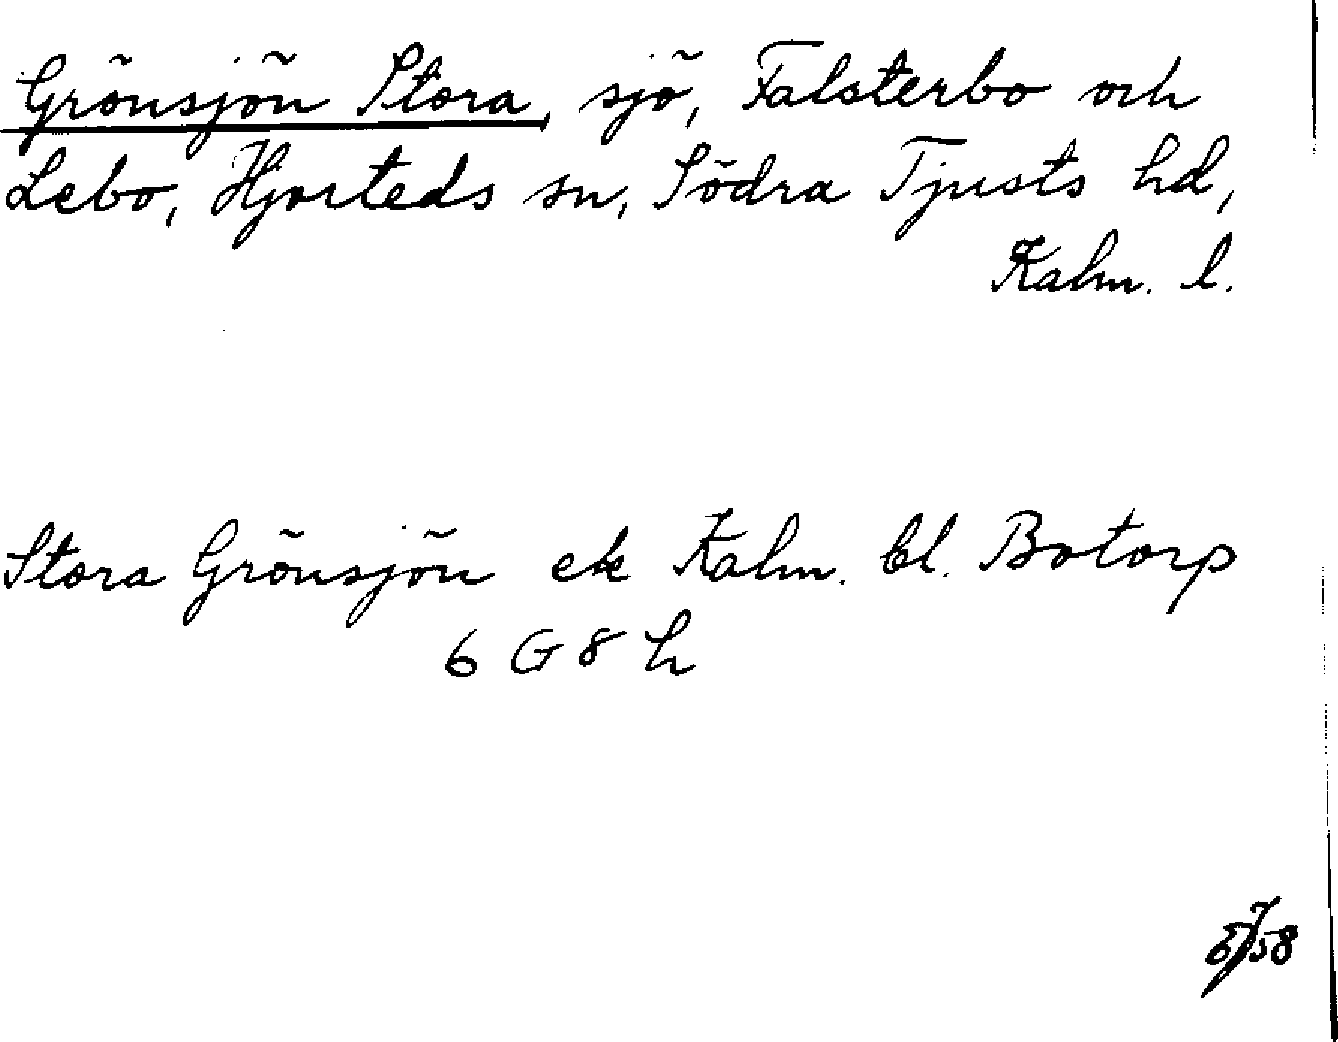 Grönsjön Stora, sjö, Falsterbo och
Lebo, Hjorteds sn, Södra Tjusts hd,
Kalm. l.
Stora Grönsjön ek Kalm. bl. Botorp
6 G 8 h